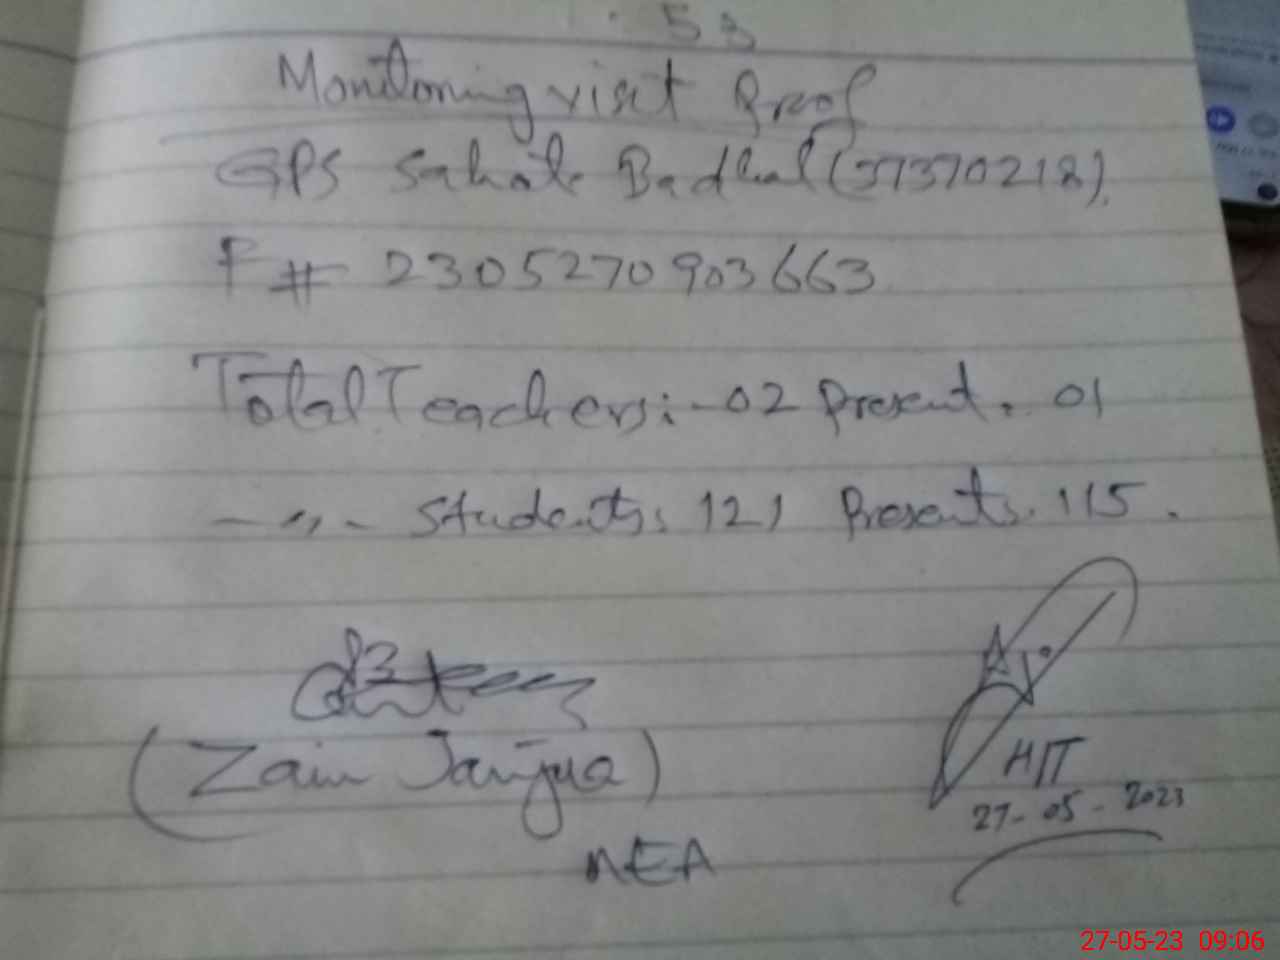 53
Monitoring visit Proof
GPS Sahote Badhal (37370218).
F# 2305270903663
Total Teachers:- 02 Present. 01
-〃- Students: 121 Presents. 115.
(Zain Janjua)
MEA
HT
27-05-2023
27-05-23 09:06